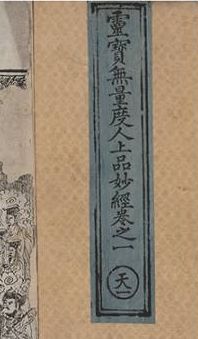 靈寶無量度人上品妙經卷之一
天一